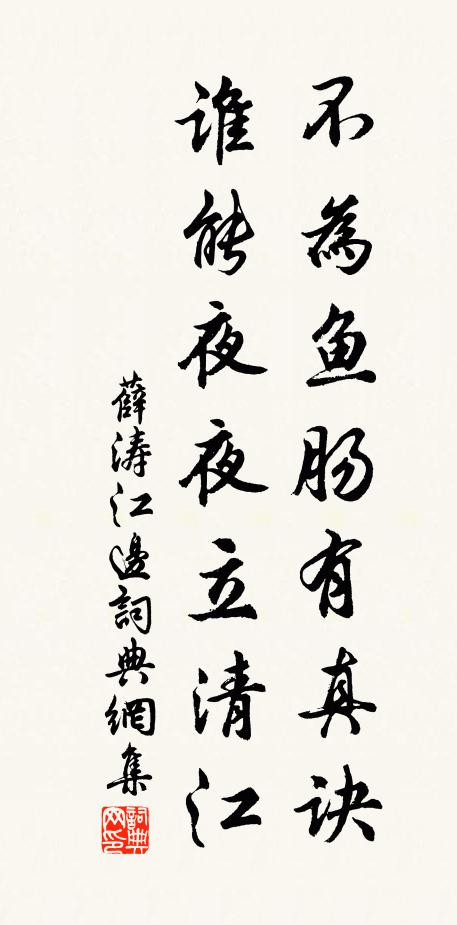 不為鱼肠有真诀
谁能夜夜立清江
薛涛江邊詞典網集
詞典网印